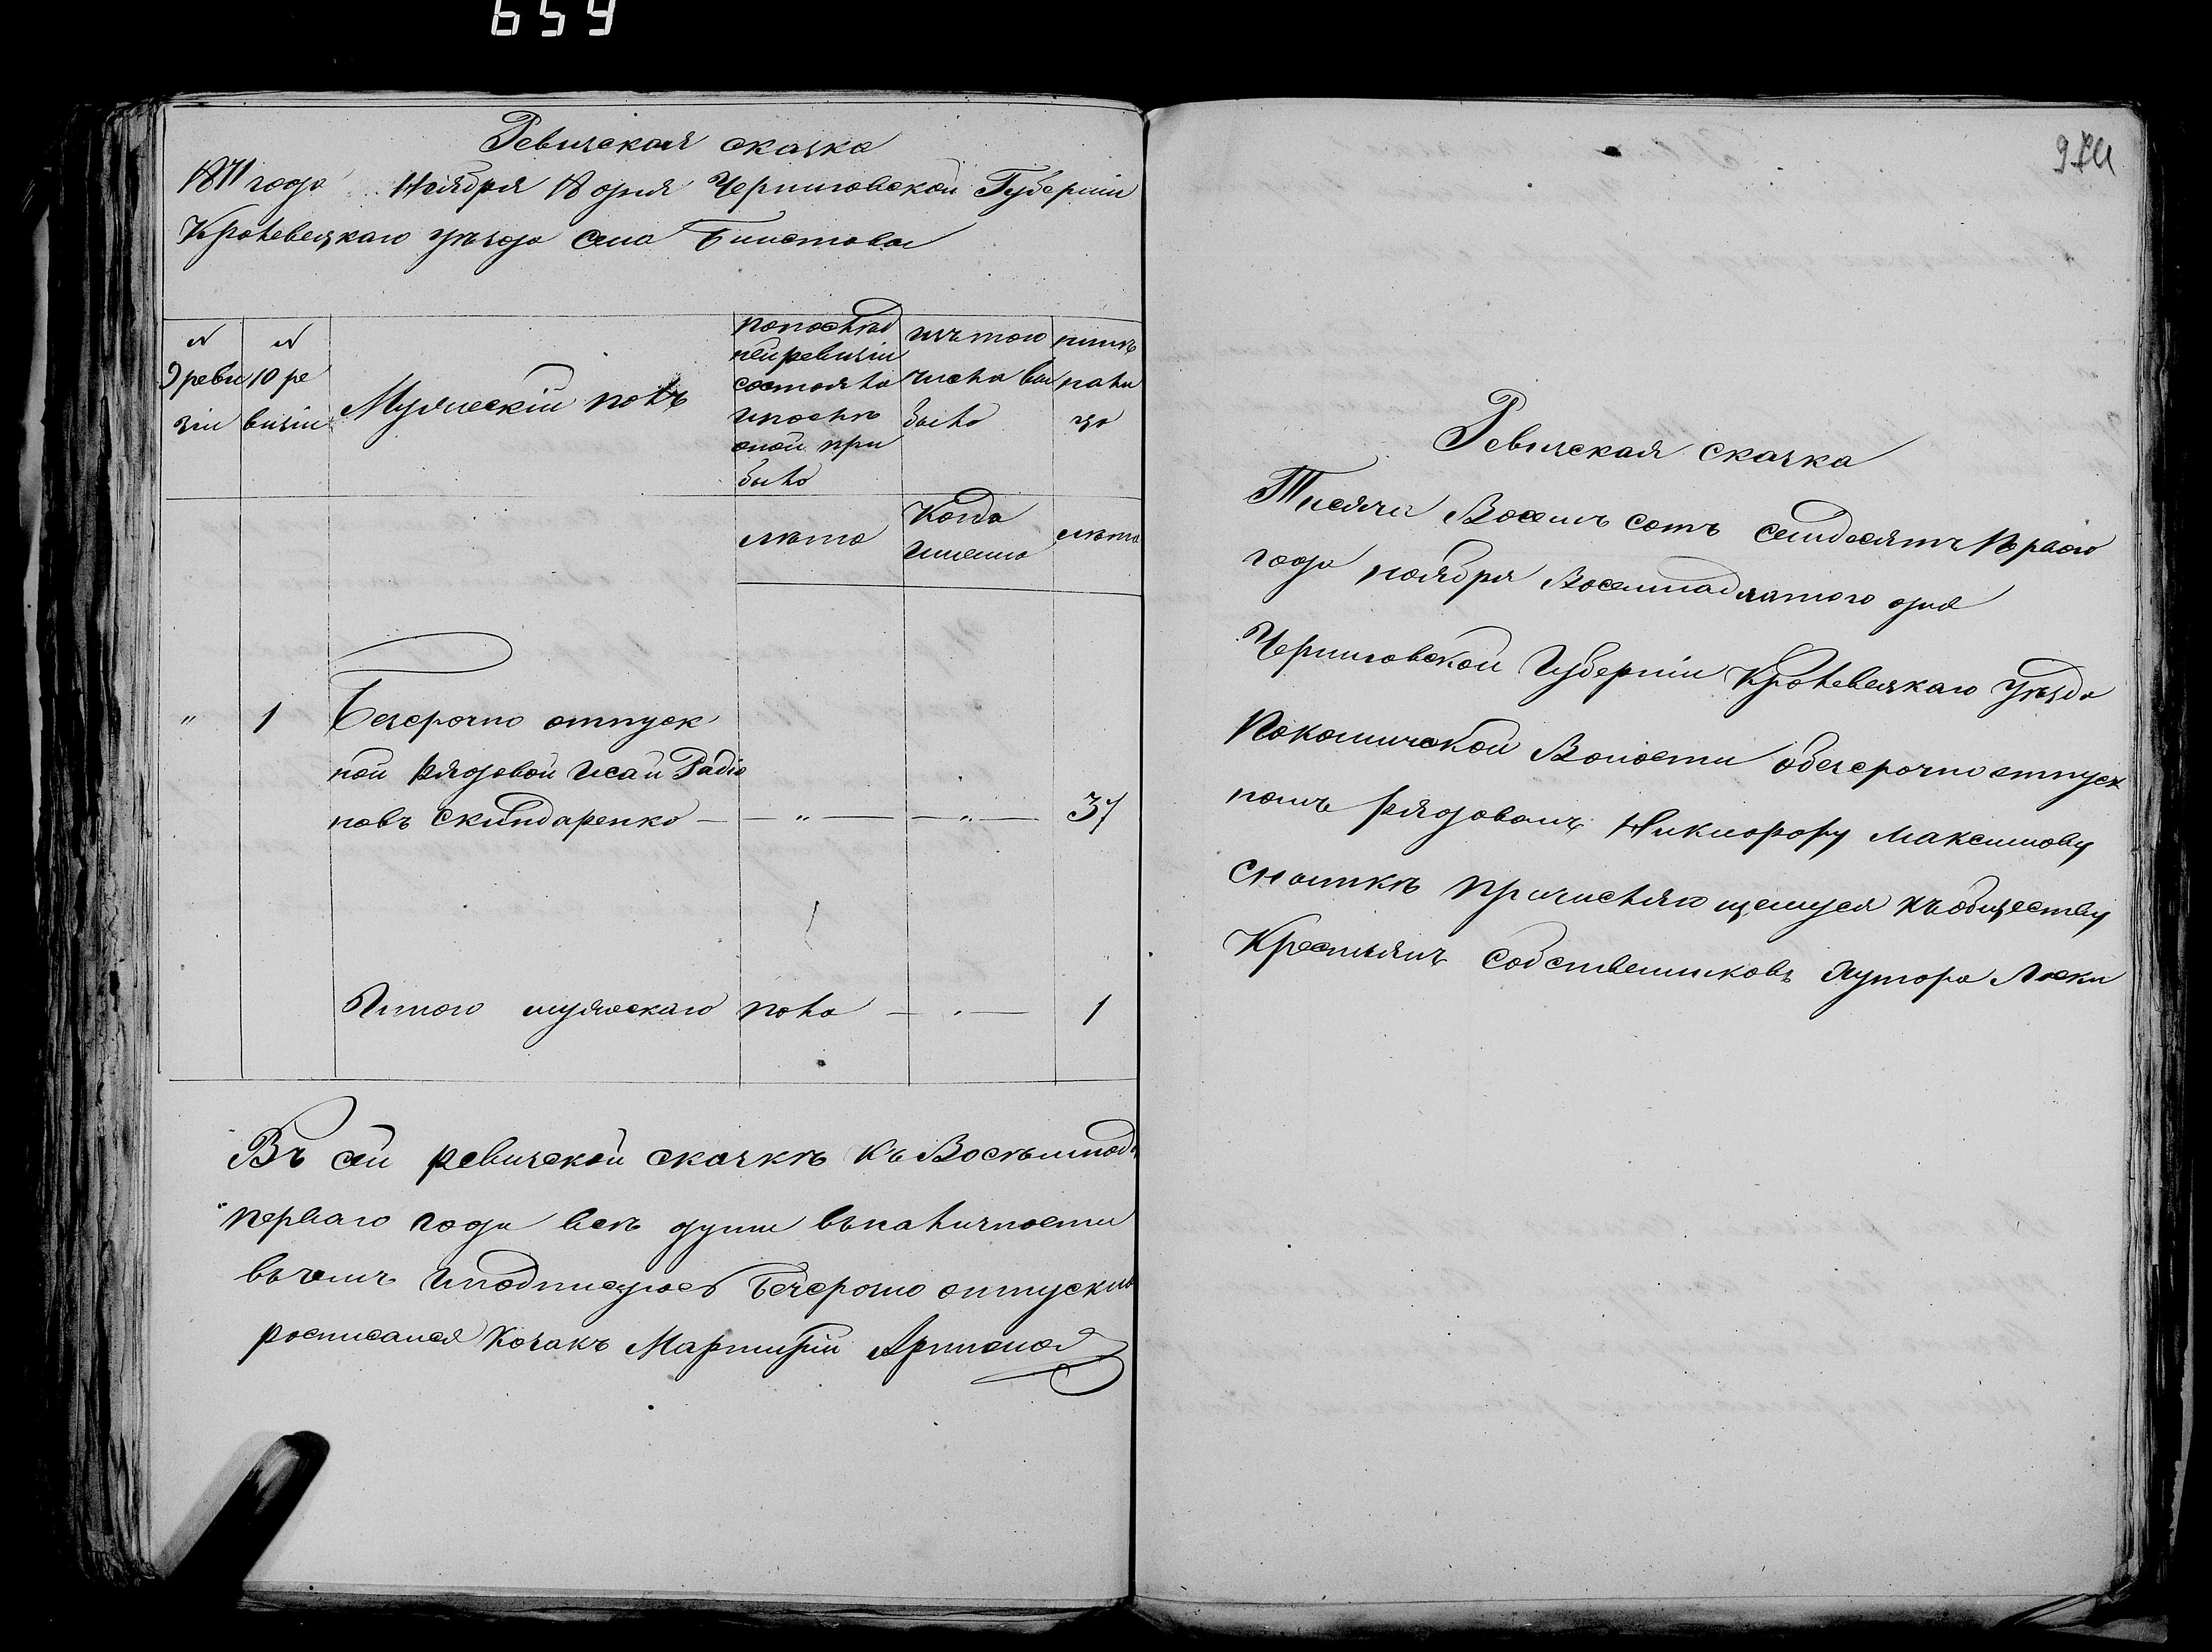 659
Ревизская сказка
1871 года Ноября 18 дня Черниговской Губерніи
Кролевецкаго уѣзда села Билотова
№ 9 ревизіи
№ 10 ревизіи
Мужескій полъ
по послѣд
ней ревизіи
состояло
и послѣ
оной при
было
изъ того
числа вы
было
нынѣ
нали
цо
лѣта
Когда
именно
лѣта
" 1 Безсрочно отпуск
ной рядовой Исай Радіо
новъ Скиндаренко — " — — " — 37
Итого мужескаго пола — . — 1
Въ сей ревизской сказкѣ къ
перваго года всѣ души въ наличности
въ чемъ и подписуюсь Безсрочно отпускн
росписался Козакъ
974
Ревизская сказка
Тисяча Восемъ сотъ семдесятъ Перваго
года ноября Восемнадцатого дня
Черниговской Губерніи Кролевецкаго Уѣзда
Покошичской Волости о безсрочно отпуск
номъ рядовомъ Никиорору Максимову
причисляющемуся къ обществу
Крестьянъ собственниковъ Хутора Лоски